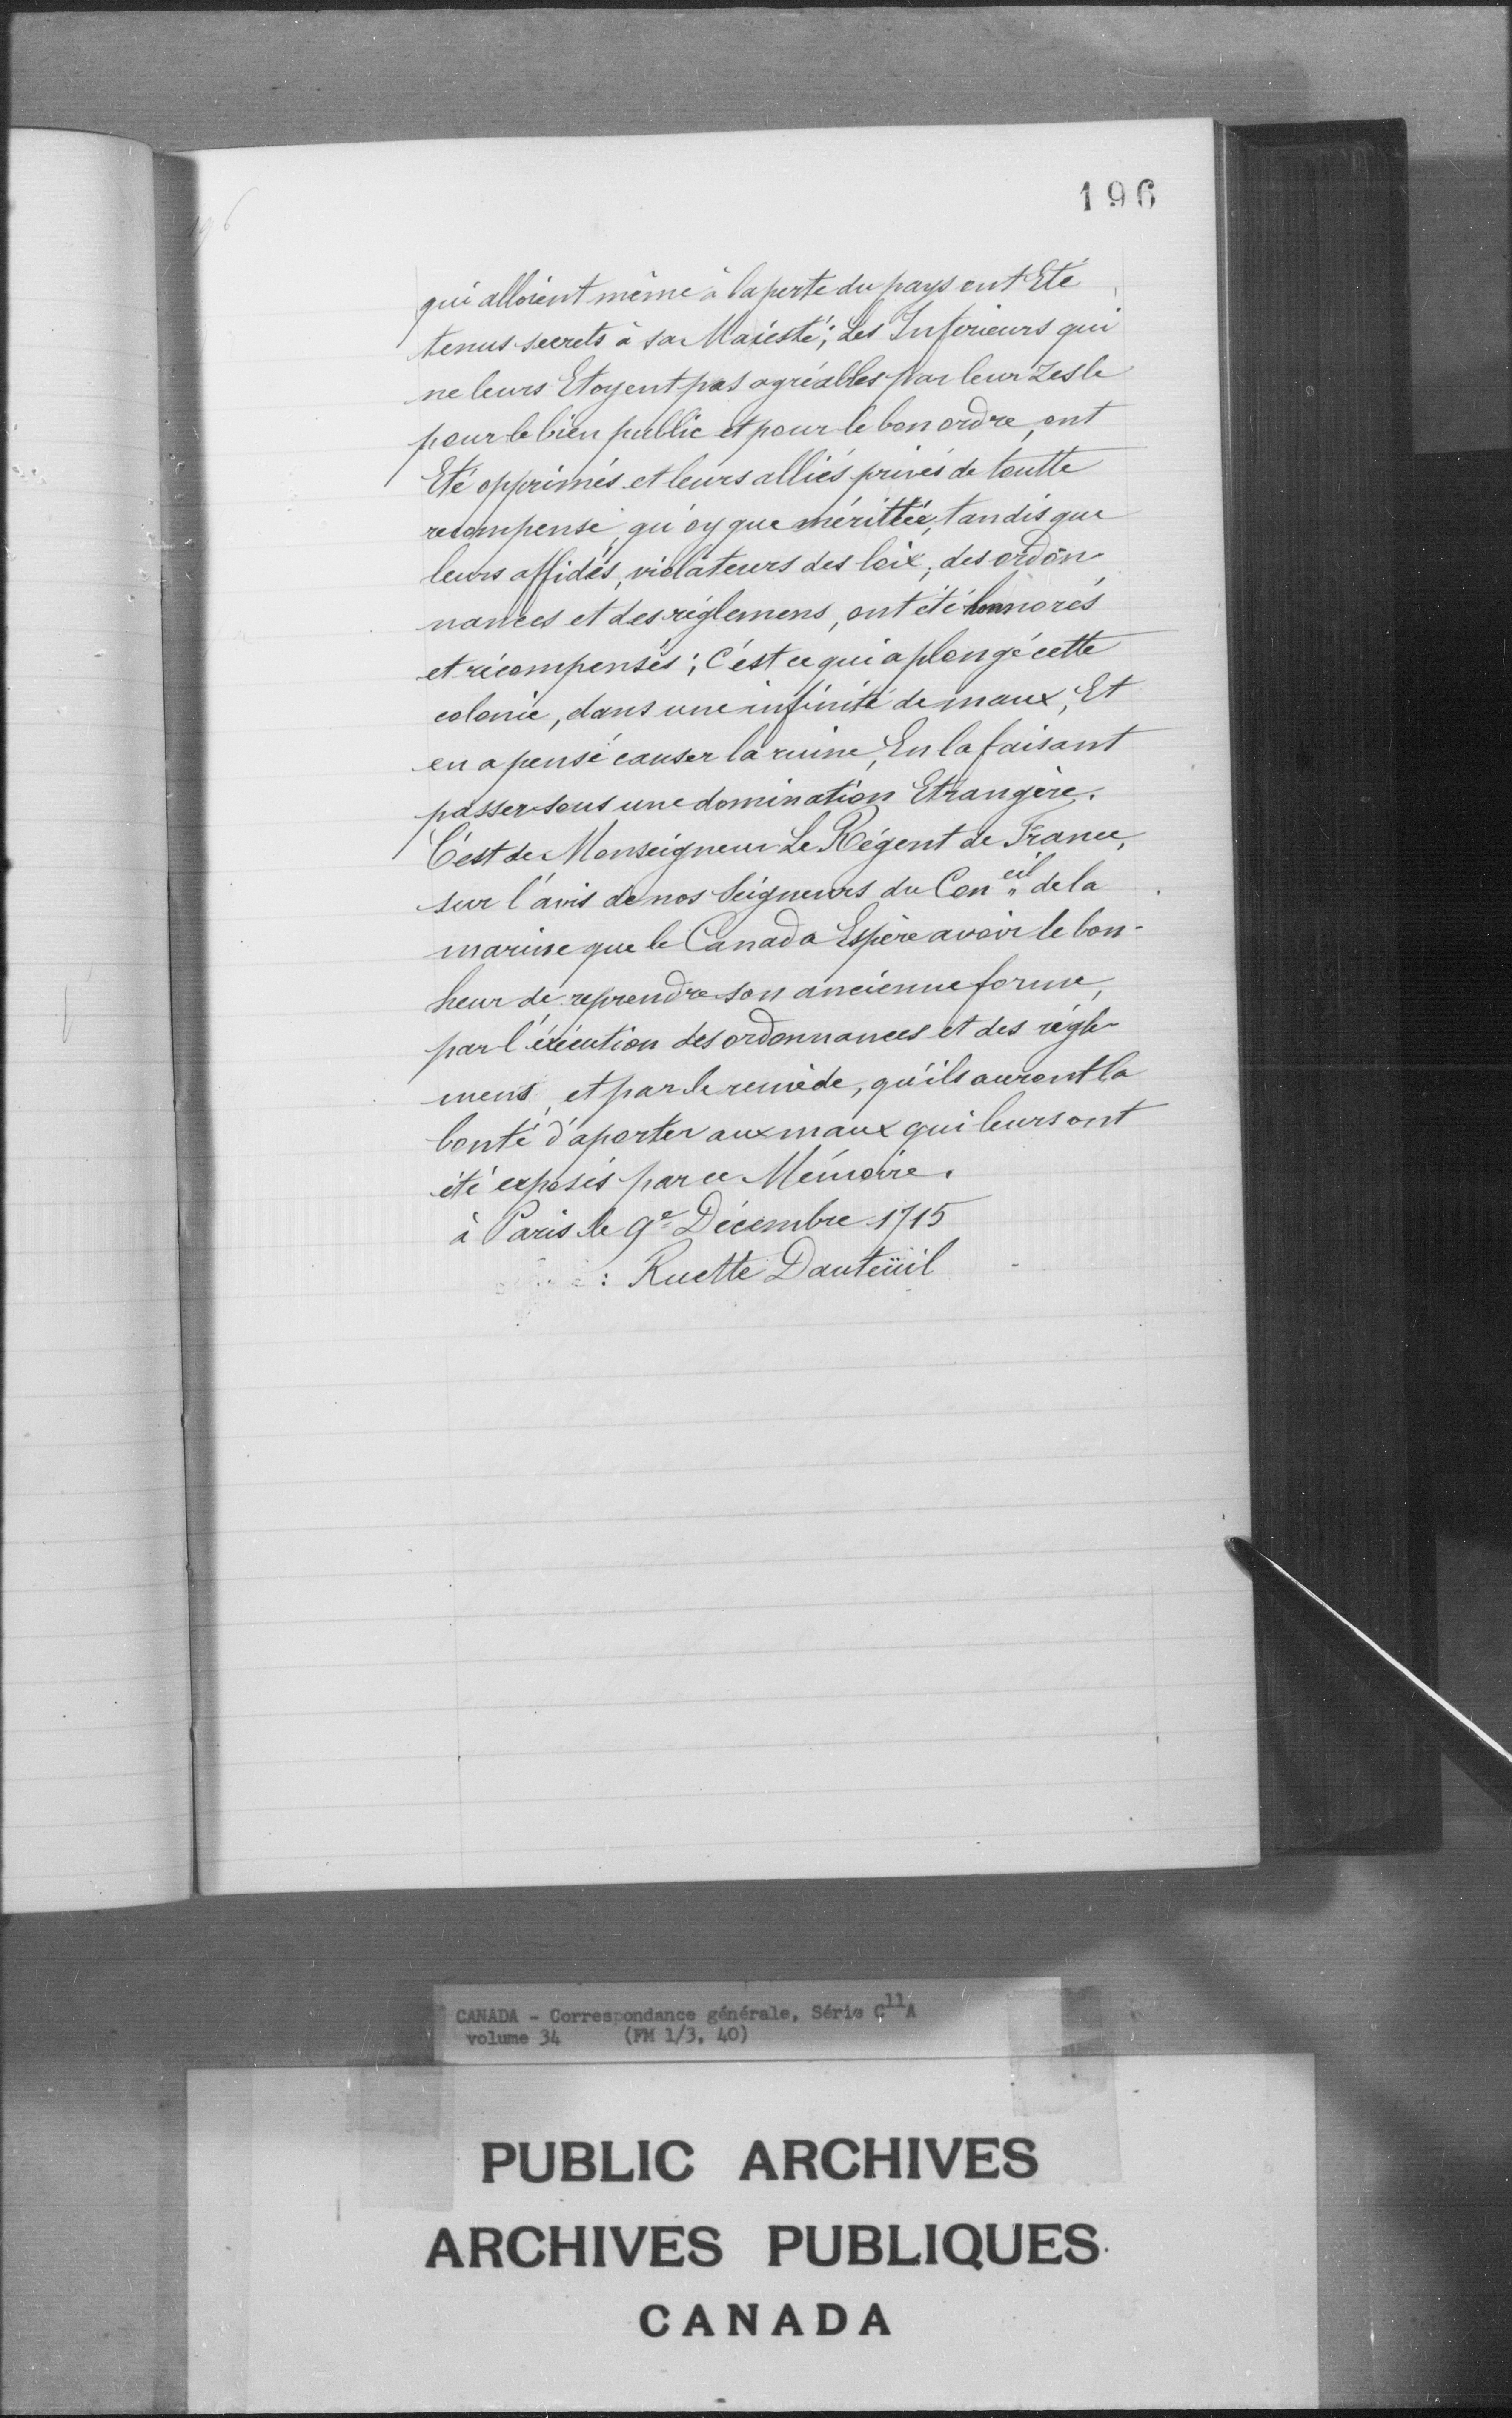 196
196
qui alloient même à la perte du pays ont Eté
tenus secrets à sa Maiesté; Les Inferieurs qui
ne leurs Etoyent pas agréables par leur Zesle
pour le bien public et pour le bon ordre, ont
Eté opprimés et leurs alliés privés de toutte
recompense, qu'oy que mérittée, tandis que
leurs affidés, violateurs des loix, des ordon-
nances et des réglemens, ont été honnorés
et récompensés; C'est ce qui a plongé cette
colonie, dans une infinité de maux, Et
en a pensé causer la ruine, En la faisant
passer sous une domination Etrangère.
C'est de Monseigneur Le Régent de France,
sur l'avis de nos Seigneurs du Con.eil de la
marine que le Canada Espère avoir le bon-
heur de reprendre son ancienne forme,
par l'éxécution des ordonnances et des régle-
mens, et par le remède, qu'ils auront la
bonté d'aporter aux maux qui leurs ont
été exposés par ce Mémoire.
à Paris le 9e Décembre 1715
: Ruette Dauteüil
CANADA - Correspondance générale, Série C11A
volume 34 (FM 1/3, 40)
PUBLIC ARCHIVES
ARCHIVES PUBLIQUES
CANADA